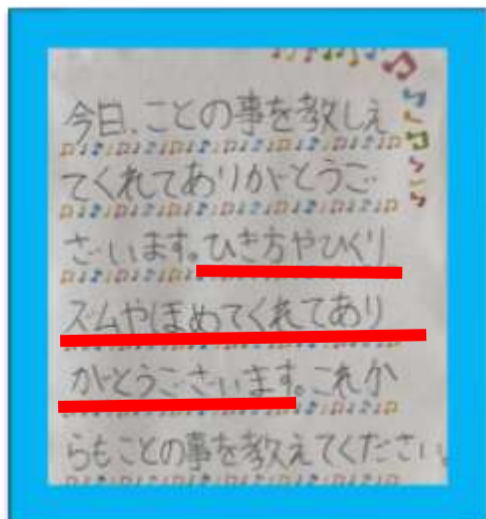 今日、ことの事を教しえ
てくれてありがとうご
ざいます。ひき方やひくリ
ズムやほめてくれてあり
がとうございます。これか
らもことの事を教えてください。